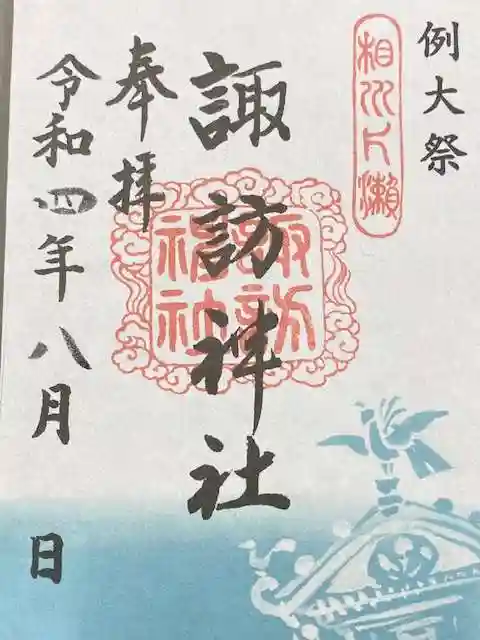 例大祭
相州片瀬
諏訪神社
諏訪神社
奉拝
令和四年八月 日